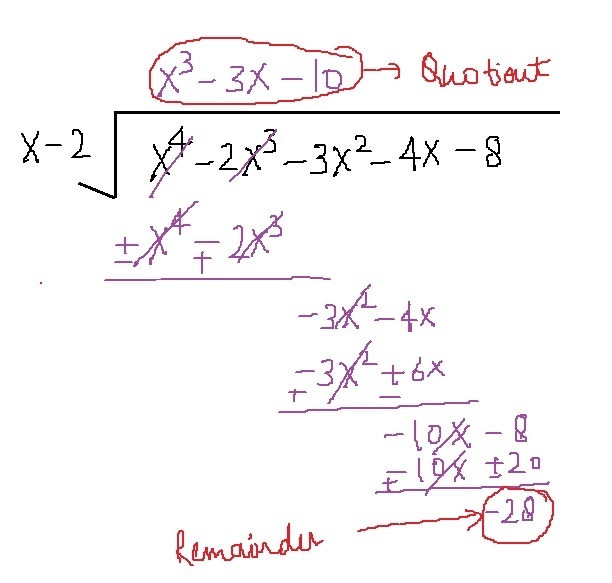 x³ - 3x - 10 → Quotient
x - 2 √ x⁴ - 2x³ - 3x² - 4x - 8
± x⁴ ∓ 2x³
- 3x² - 4x
∓ 3x² ± 6x
- 10x - 8
∓ 10x ± 20
- 28
Remainder